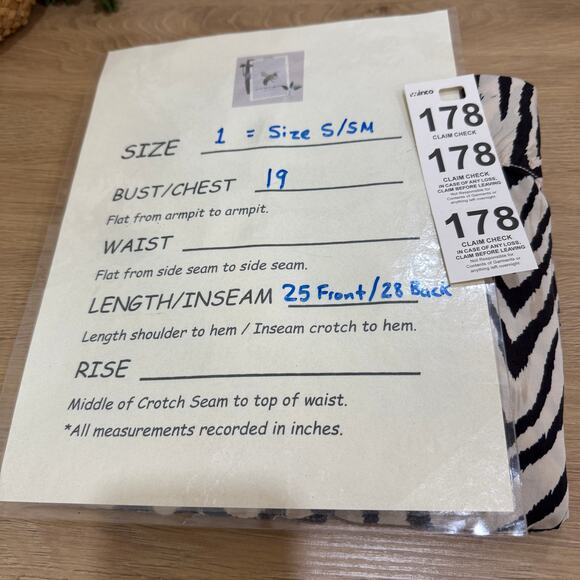 SIZE 1 = Size S/SM
BUST/CHEST 19
Flat from armpit to armpit.
WAIST
Flat from side seam to side seam.
LENGTH/INSEAM 25 Front/28 Back
Length shoulder to hem / Inseam crotch to hem.
RISE
Middle of Crotch Seam to top of waist.
*All measurements recorded in inches.
winco
178
CLAIM CHECK
178
CLAIM CHECK
IN CASE OF ANY LOSS,
CLAIM BEFORE LEAVING
Not Responsible for
Contents of Garments or
anything left overnight.
178
CLAIM CHECK
IN CASE OF ANY LOSS,
CLAIM BEFORE LEAVING
Not Responsible for
Contents of Garments or
anything left overnight.